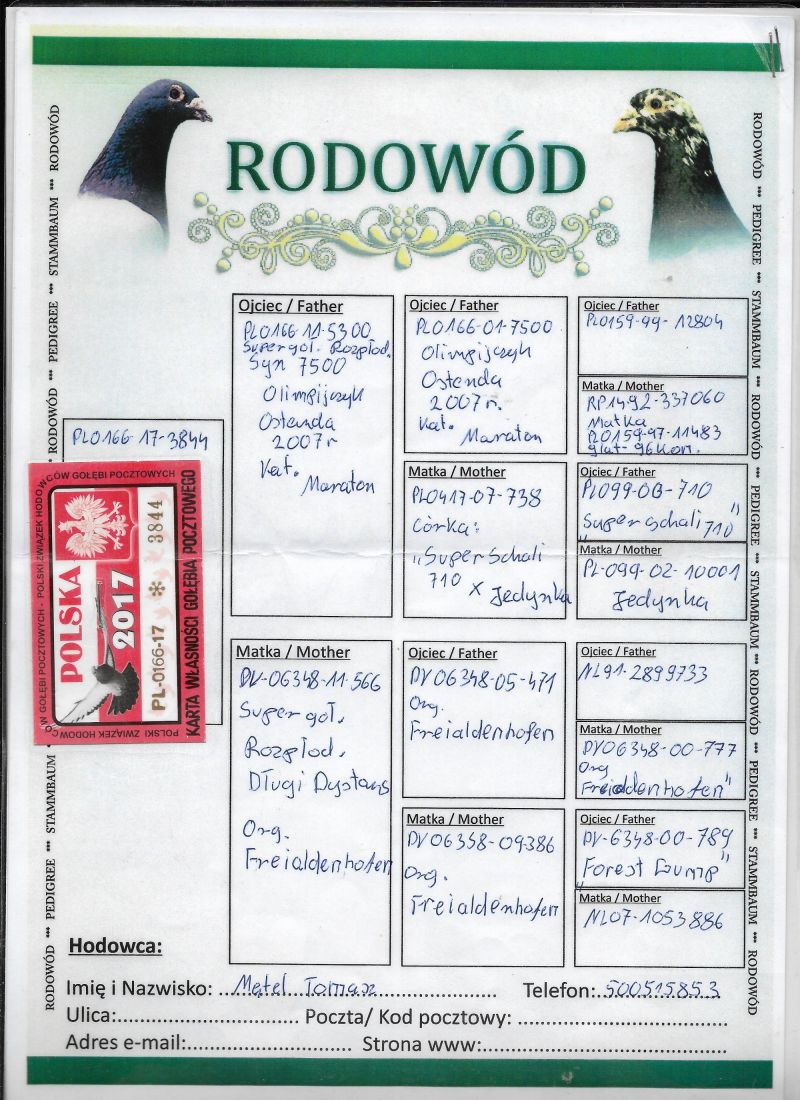 RODOWÓD
RODOWÓD *** PEDIGREE *** STAMMBAUM *** RODOWÓD *** PEDIGREE *** STAMMBAUM *** RODOWÓD
RODOWÓD *** PEDIGREE *** STAMMBAUM *** RODOWÓD *** PEDIGREE *** STAMMBAUM *** RODOWÓD *** PEDIGREE *** STAMMBAUM *** RODOWÓD
PL0166-17-3844
POLSKI ZWIĄZEK HODOWCÓW GOŁĘBI POCZTOWYCH
POLSKA
2017
PL-0166-17 * 3844
KARTA WŁASNOŚCI GOŁĘBIA POCZTOWEGO
Ojciec / Father
PL0166-11-5300
Super goł. Rozpłod.
Syn 7500
Olimpijczyk
Ostenda
2007r
Kat.
Maraton
Matka / Mother
DV-06348-11-566
Super goł.
Rozpłod.
Długi Dystans
Org.
Freialdenhofen
Ojciec / Father
PL0166-01-7500
Olimpijczyk
Ostenda
2007r.
Kat.
Maraton
Matka / Mother
PL0417-07-738
Córka:
„Super Schali
710 x Jedynka
Ojciec / Father
DV06348-05-471
Org.
Freialdenhofen
Matka / Mother
DV06358-09-386
Org.
Freialdenhofen
Ojciec / Father
PL0159-99-12804
Matka / Mother
RP1492-337060
Matka
PL0159-97-11483
Ojciec / Father
PL099-08-710
„Super Schali 710"
Matka / Mother
PL-099-02-10001
Jedynka
Ojciec / Father
NL91-2899733
Matka / Mother
DV06348-00-777
Org
Freialdenhofen"
Ojciec / Father
DV-6348-00-789
„Forest Gump"
Matka / Mother
NL07-1053886
Hodowca:
Imię i Nazwisko: Mętel Tomasz Telefon: 500515853
Ulica: Poczta/ Kod pocztowy:
Adres e-mail: Strona www: